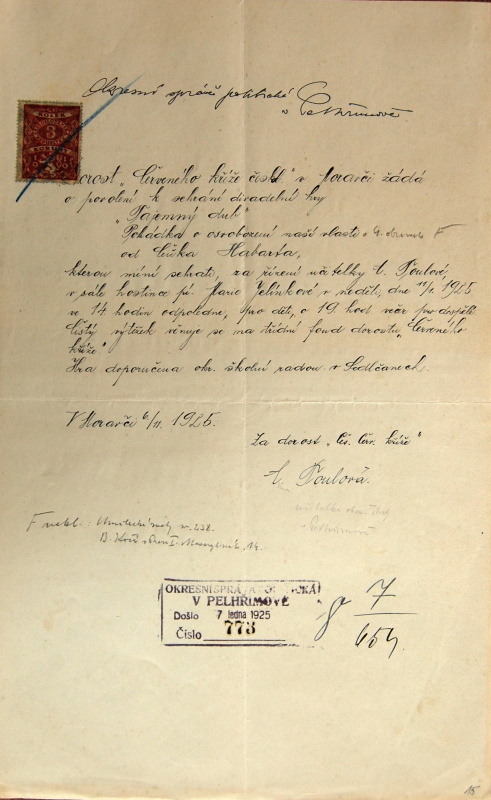 Okresní správě politické
v Pelhřimově
KOLEK
3
KORUNY
Dorost „Červeného kříže čsl." v Moravči žádá
o povolení k sehrání divadelní hry
„Tajemný dub"
Pohádka o osvobození naší vlasti o 4. obrazech F
od Čeňka Habarta,
kterou míní sehrati, za řízení učitelky E. Poulové,
v sále hostince pí. Marie Jelínkové v neděli, dne 11/1. 1925
ve 14 hodin odpoledne, pro děti, o 19. hod. večer pro dospělé.
Čistý výtěžek věnuje se na třídní fond dorostu „Červeného
kříže".
Hra doporučena okr. školní radou v Sedlčanech.
V Moravči 6/1. 1925.
Za dorost „Čs. Čer. kříže"
E. Poulová.
v Pelhřimově
F nakl.:
OKRESNÍ SPRÁVA POLITICKÁ
V PELHŘIMOVĚ
Došlo 7 ledna 1925
Číslo 773
7
654
15